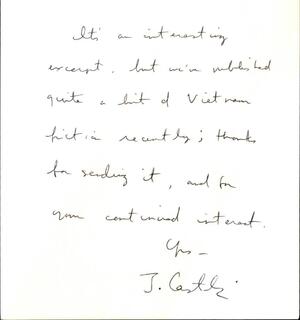 It's an interesting
excerpt, but we've published
quite a bit of Vietnam
fiction recently; thanks
for sending it, and for
your continued interest.
Yrs –
J.